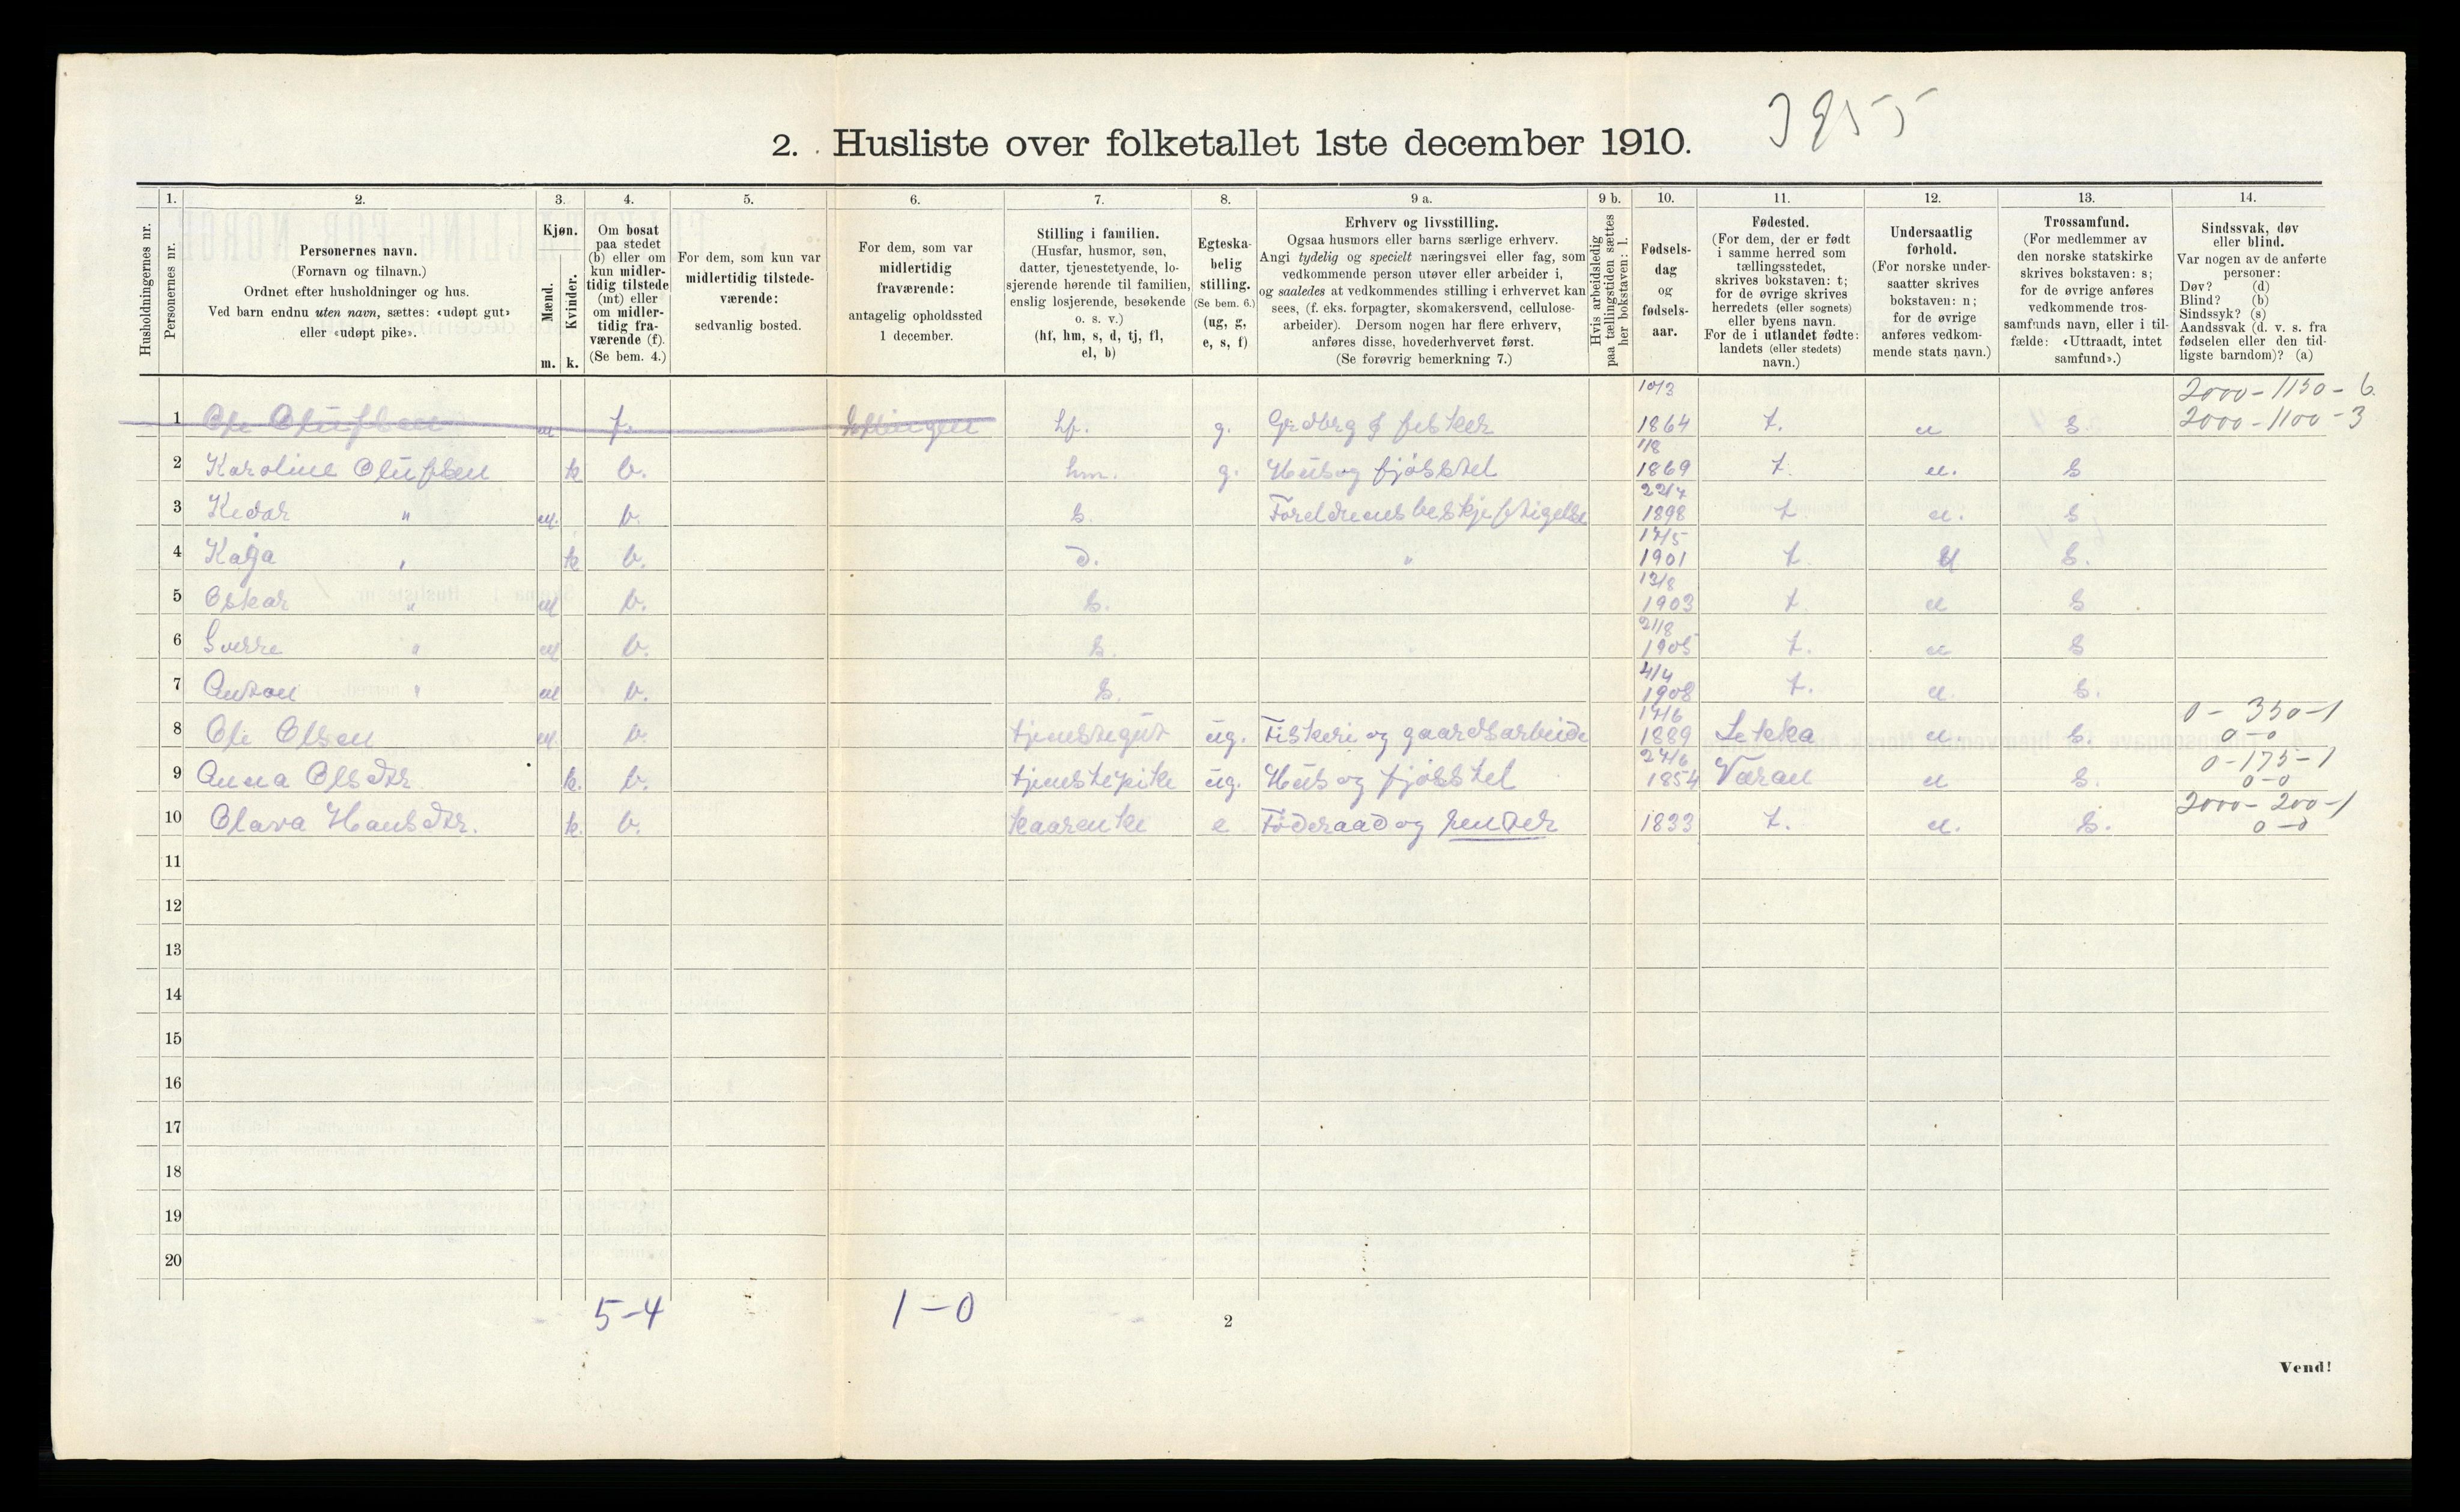 3955
2. Husliste over folketallet 1ste december 1910.
Husholdningernes nr.
1. Personernes nr.
2. Personernes navn.
(Fornavn og tilnavn.)
Ordnet efter husholdninger og hus.
Ved barn endnu uten navn, sættes: «udøpt gut»
eller «udøpt pike».
3. Kjøn.
Mænd. m.
Kvinder. k.
4. Om bosat
paa stedet
(b) eller om
kun midler-
tidig tilstede
(mt) eller
om midler-
tidig fra-
værende (f).
(Se bem. 4.)
5. For dem, som kun var
midlertidig tilstede-
værende:
sedvanlig bosted.
6. For dem, som var
midlertidig
fraværende:
antagelig opholdssted
1 december.
7. Stilling i familien.
(Husfar, husmor, søn,
datter, tjenestetyende, lo-
sjerende hørende til familien,
enslig losjerende, besøkende
o. s. v.)
(hf, hm, s, d, tj, fl,
el, b)
8. Egteska-
belig
stilling.
(Se bem. 6.)
(ug, g,
e, s, f)
9 a. Erhverv og livsstilling.
Ogsaa husmors eller barns særlige erhverv.
Angi tydelig og specielt næringsvei eller fag, som
vedkommende person utøver eller arbeider i,
og saaledes at vedkommendes stilling i erhvervet kan
sees, (f. eks. forpagter, skomakersvend, cellulose-
arbeider). Dersom nogen har flere erhverv,
anføres disse, hovederhvervet først.
(Se forøvrig bemerkning 7.)
9 b. Hvis arbeidsledig
paa tællingstiden sættes
her bokstaven: l.
10. Fødsels-
dag
og
fødsels-
aar.
11. Fødested.
(For dem, der er født
i samme herred som
tællingsstedet,
skrives bokstaven: t;
for de øvrige skrives
herredets (eller sognets)
eller byens navn.
For de i utlandet fødte:
landets (eller stedets)
navn.)
12. Undersaatlig
forhold.
(For norske under-
saatter skrives
bokstaven: n;
for de øvrige
anføres vedkom-
mende stats navn.)
13. Trossamfund.
(For medlemmer av
den norske statskirke
skrives bokstaven: s;
for de øvrige anføres
vedkommende tros-
samfunds navn, eller i til-
fælde: «Uttraadt, intet
samfund».)
14. Sindssvak, døv
eller blind.
Var nogen av de anførte
personer:
Døv? (d)
Blind? (b)
Sindssyk? (s)
Aandssvak (d. v. s. fra
fødselen eller den tid-
ligste barndom)? (a)
10/3 2000-1150-6
1 Ole Olufsen m f. hf. g. Grdbrg & fisker 1864 t. n s. 2000-1100-3
1/8
2 Karoline Olufsen k b. hm. g. Hus og fjösstel 1869 t. n. s
22/7
3 Kedar " m. b. s. Foreldrenes beskjeftigelse 1898 t n. s
17/5
4 Kaja " k b. d. " 1901 t n s.
13/8
5 Oskar " m b. s. 1903 t n s
21/8
6 Sverre " m b. s. 1905 t. n s
4/4
7 Anton " m b. s. 1908 t. n. s.
17/6 0-350-1
8 Ole Olsen m. b. tjenestegut ug. Fiskeri og gaardsarbeide 1889 Lekka n. s. 0-0
27/6 0-175-1
9 Anna Olsdtr k. b. tjenstepike ug. Hus og fjösstel 1854 Væran n s. 0-0
2000-200-1
10 Olava Hansdtr. k. b. kaarenke e Föderaad og renter 1833 t. n. s. 0-0
11
12
13
14
15
16
17
18
19
20
5-4 1-0
2
Vend!